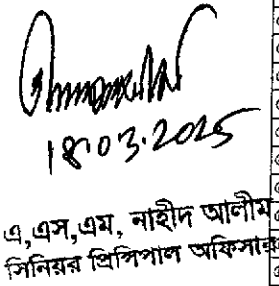 18.03.2025
এ,এস,এম, নাহীদ আলীম
সিনিয়র প্রিন্সিপাল অফিসার